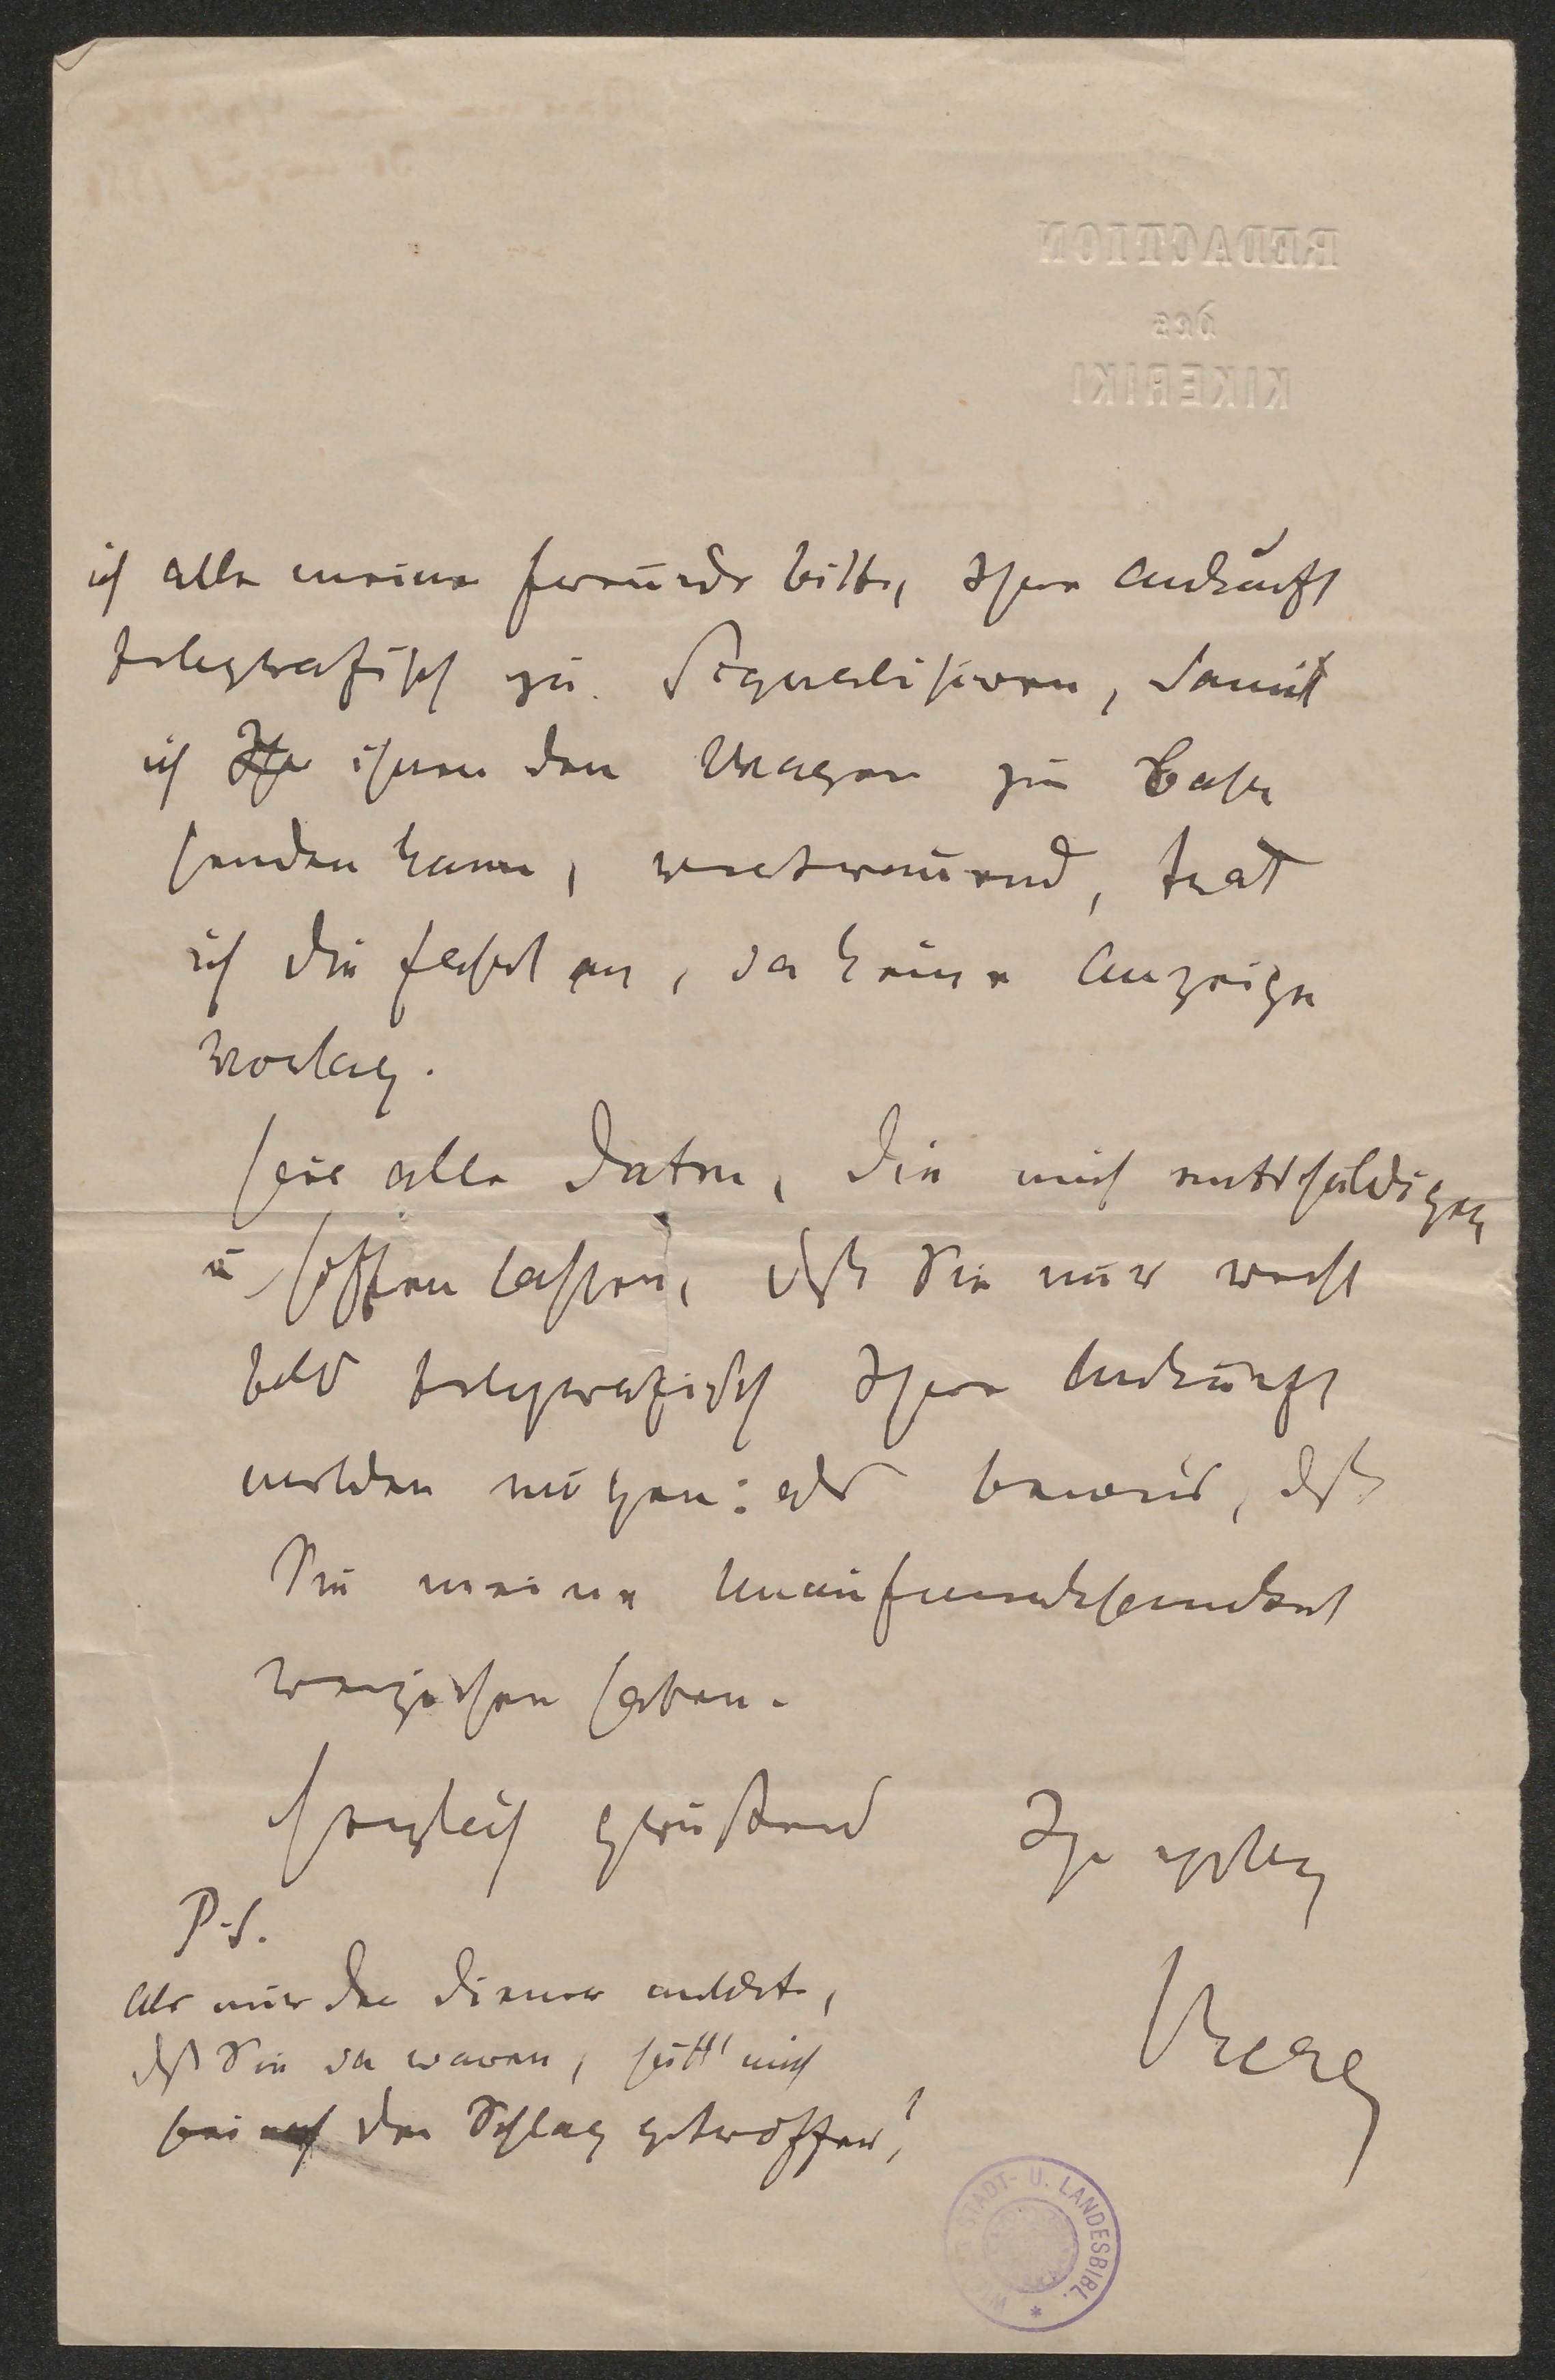 REDACTION
des
KIKERIKI
ich alle meine Freunde bitte, Ihre Ankunft
telegrafisch zu signalisiren, damit
ich Ihn ihnen den Wagen zur Bahn
senden kann, vertrauend, trat
ich die Fahrt an, da keine Anzeige
vorlag.
Das alle Daten, die mich entschuldigen
u hoffen lassen, dß Sie mir recht
bald telegrafisch Ihre Ankunft
melden mögen: als Beweis, dß
Sie meine Unaufmerksamkeit
verziehen haben.
Herzlich grüßend Ihr ergeb
Berg
P.S.
Als mir der Diener meldete,
dß Sie da waren, hätt' mich
bei nah der Schlag getroffen!
WIENER STADT- U. LANDESBIBL.